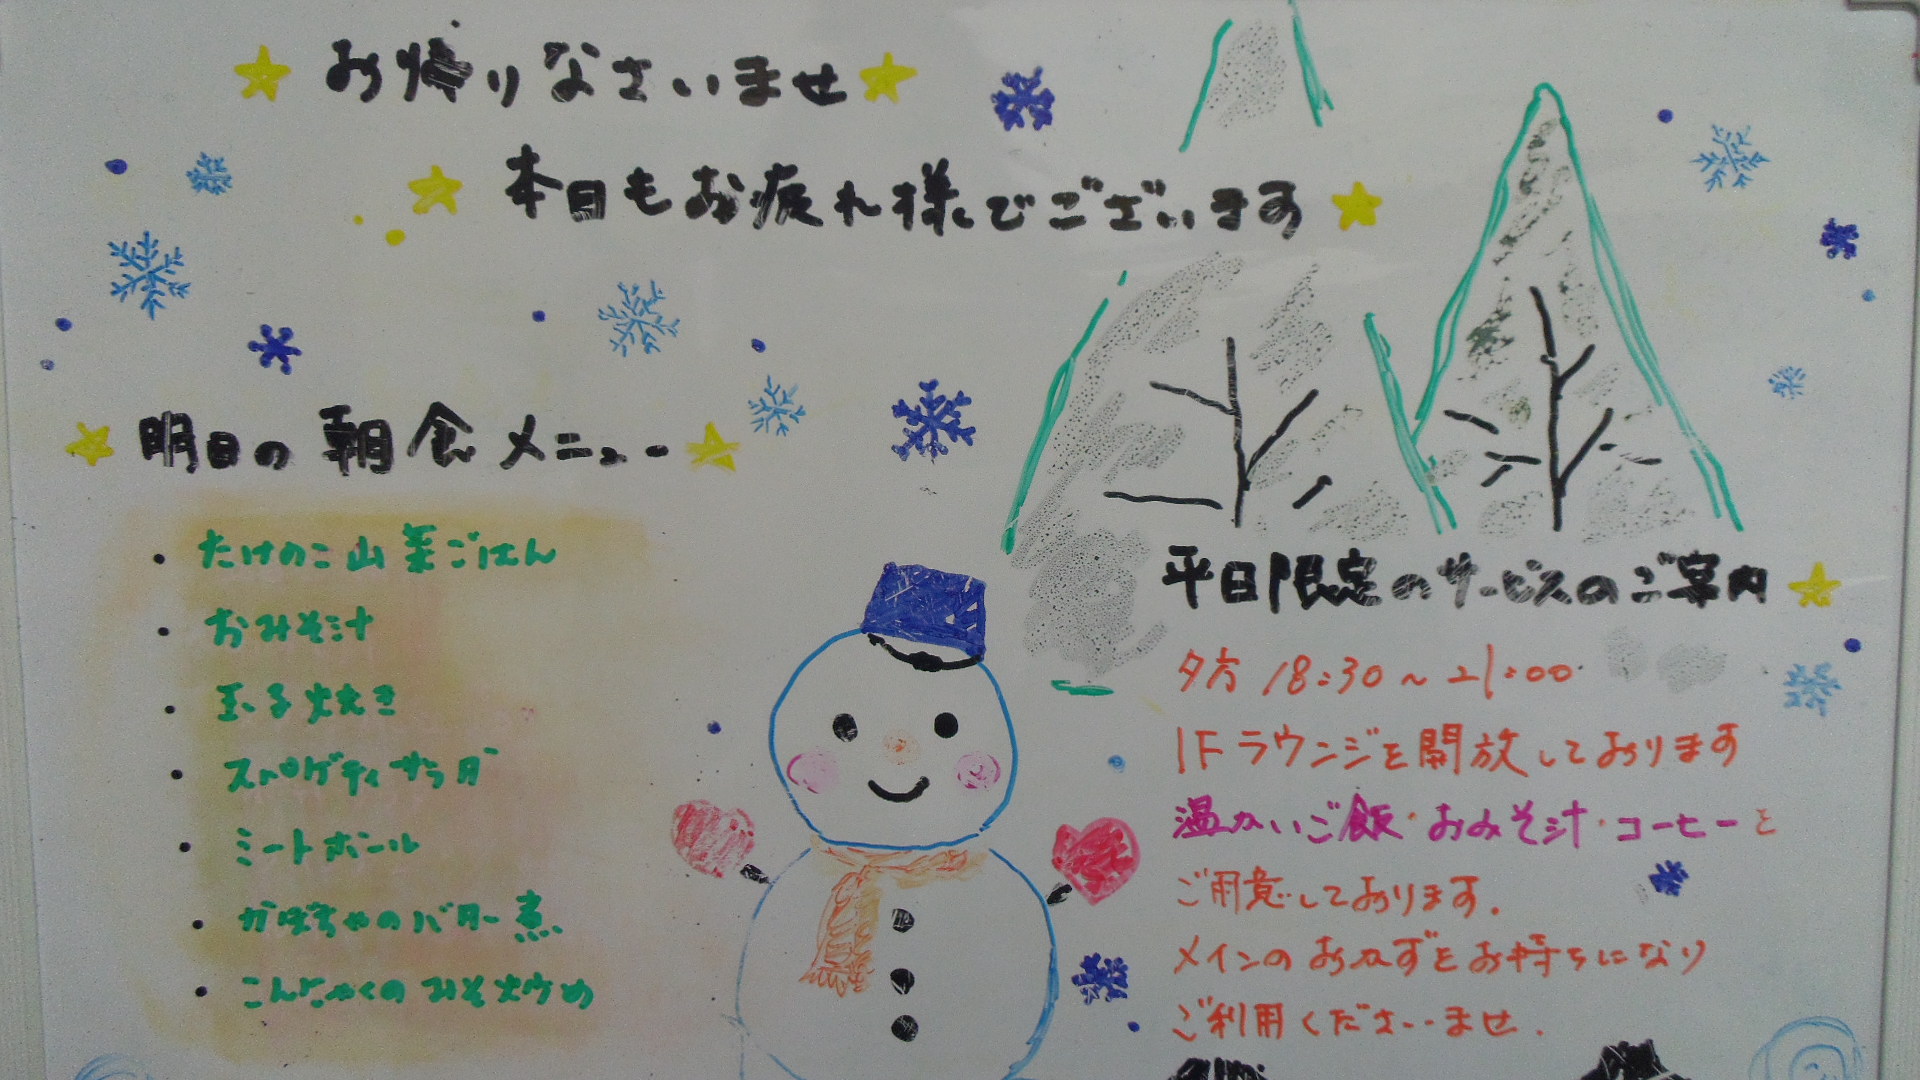 お帰りなさいませ
本日もお疲れ様でございます
明日の朝食メニュー
・たけのこ山菜ごはん
・おみそ汁
・玉子焼き
・スパゲティサラダ
・ミートボール
・かぼちゃのバター煮
・こんにゃくのみそ炒め
平日限定のサービスのご案内
夕方 18:30~21:00
1Fラウンジを開放しております
温かいご飯・おみそ汁・コーヒーを
ご用意しております.
メインのおかずをお持ちになり
ご利用くださいませ.